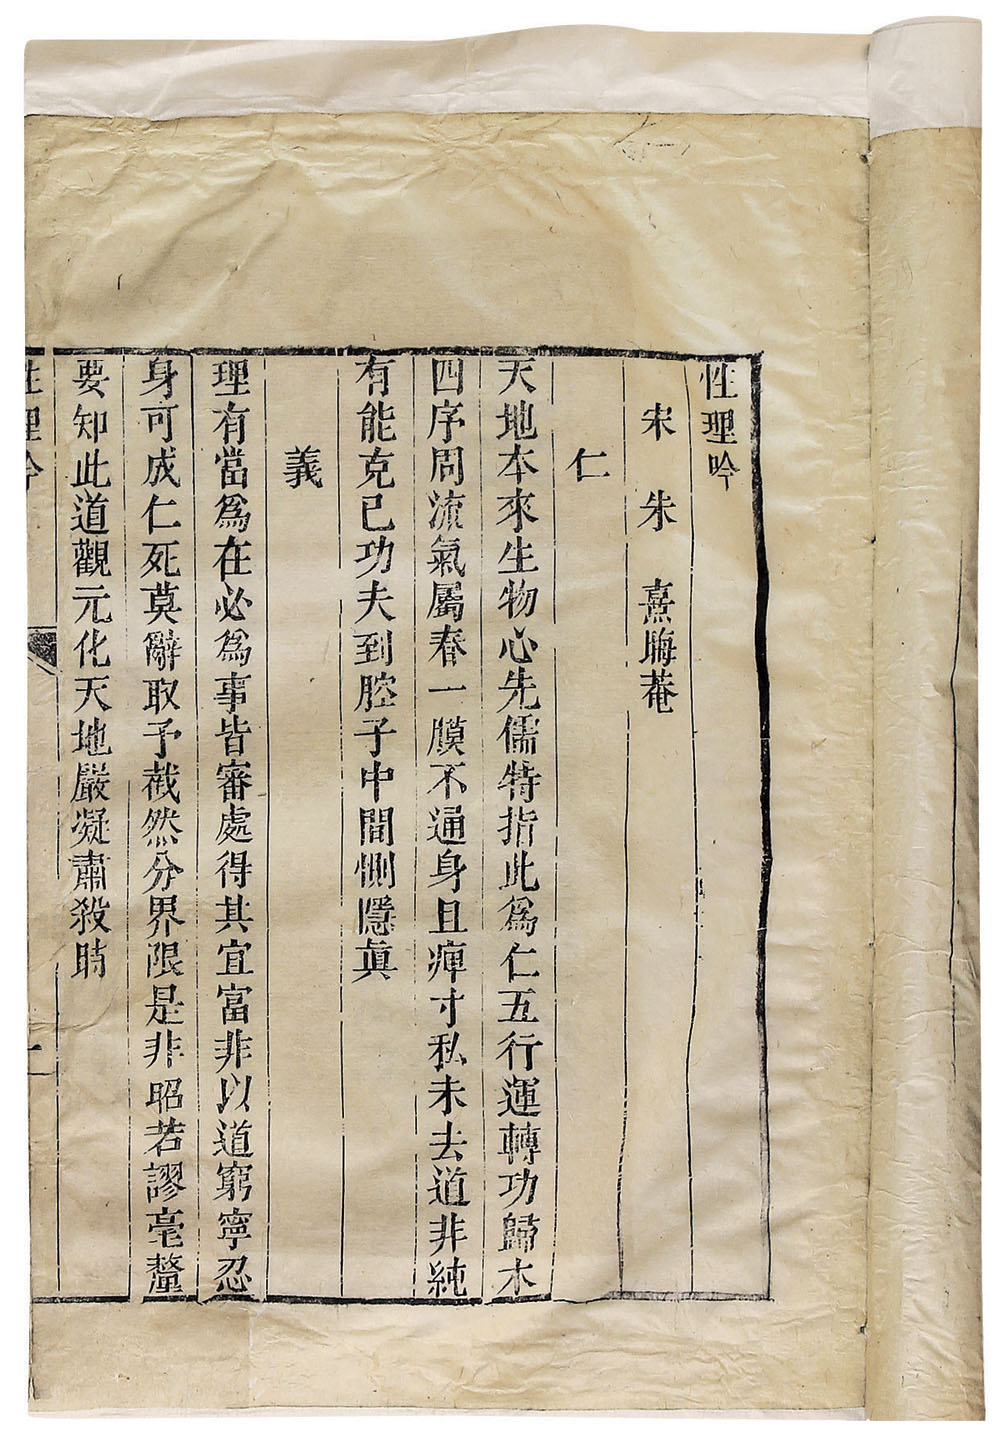 性理吟
宋 朱 熹晦菴
仁
天地本來生物心先儒特指此爲仁五行運轉功歸木
四序周流氣屬春一膜不通身且痺寸私未去道非純
有能克己功夫到腔子中間惻隱眞
義
理有當爲在必爲事皆審處得其宜富非以道窮寧忍
身可成仁死莫辭取予截然分界限是非昭若謬毫釐
要知此道觀元化天地嚴凝肅殺時
性理吟
一